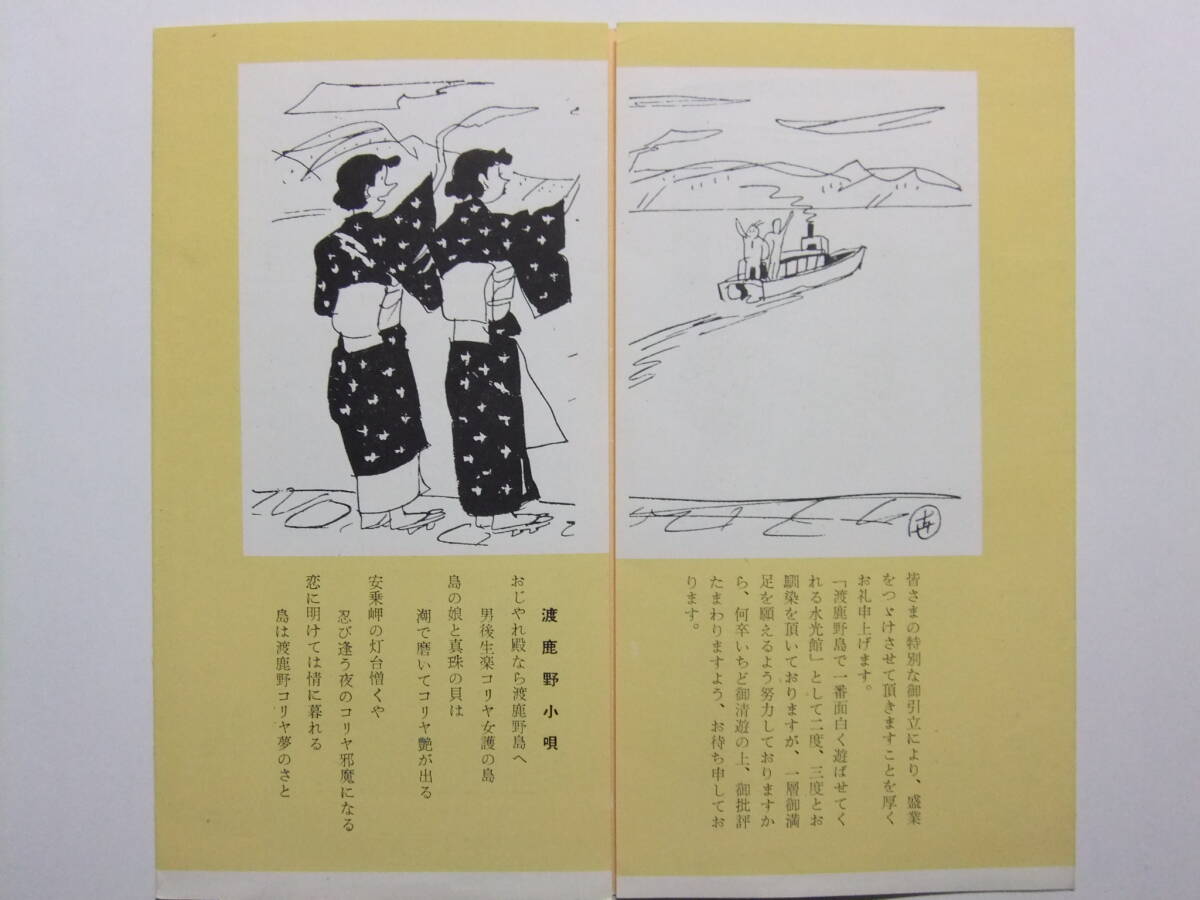 皆さまの特別な御引立により、盛業
をつゞけさせて頂きますことを厚く
お礼申上げます。
「渡鹿野島で一番面白く遊ばせてく
れる水光館」として二度、三度とお
馴染を頂いておりますが、一層御満
足を願えるよう努力しておりますか
ら、何卒いちど御清遊の上、御批評
たまわりますよう、お待ち申してお
ります。
渡鹿野小唄
おじやれ殿なら渡鹿野島へ
男後生楽コリヤ女護の島
島の娘と真珠の貝は
潮で磨いてコリヤ艶が出る
安乗岬の灯台憎くや
忍び逢う夜のコリヤ邪魔になる
恋に明けては情に暮れる
島は渡鹿野コリヤ夢のさと